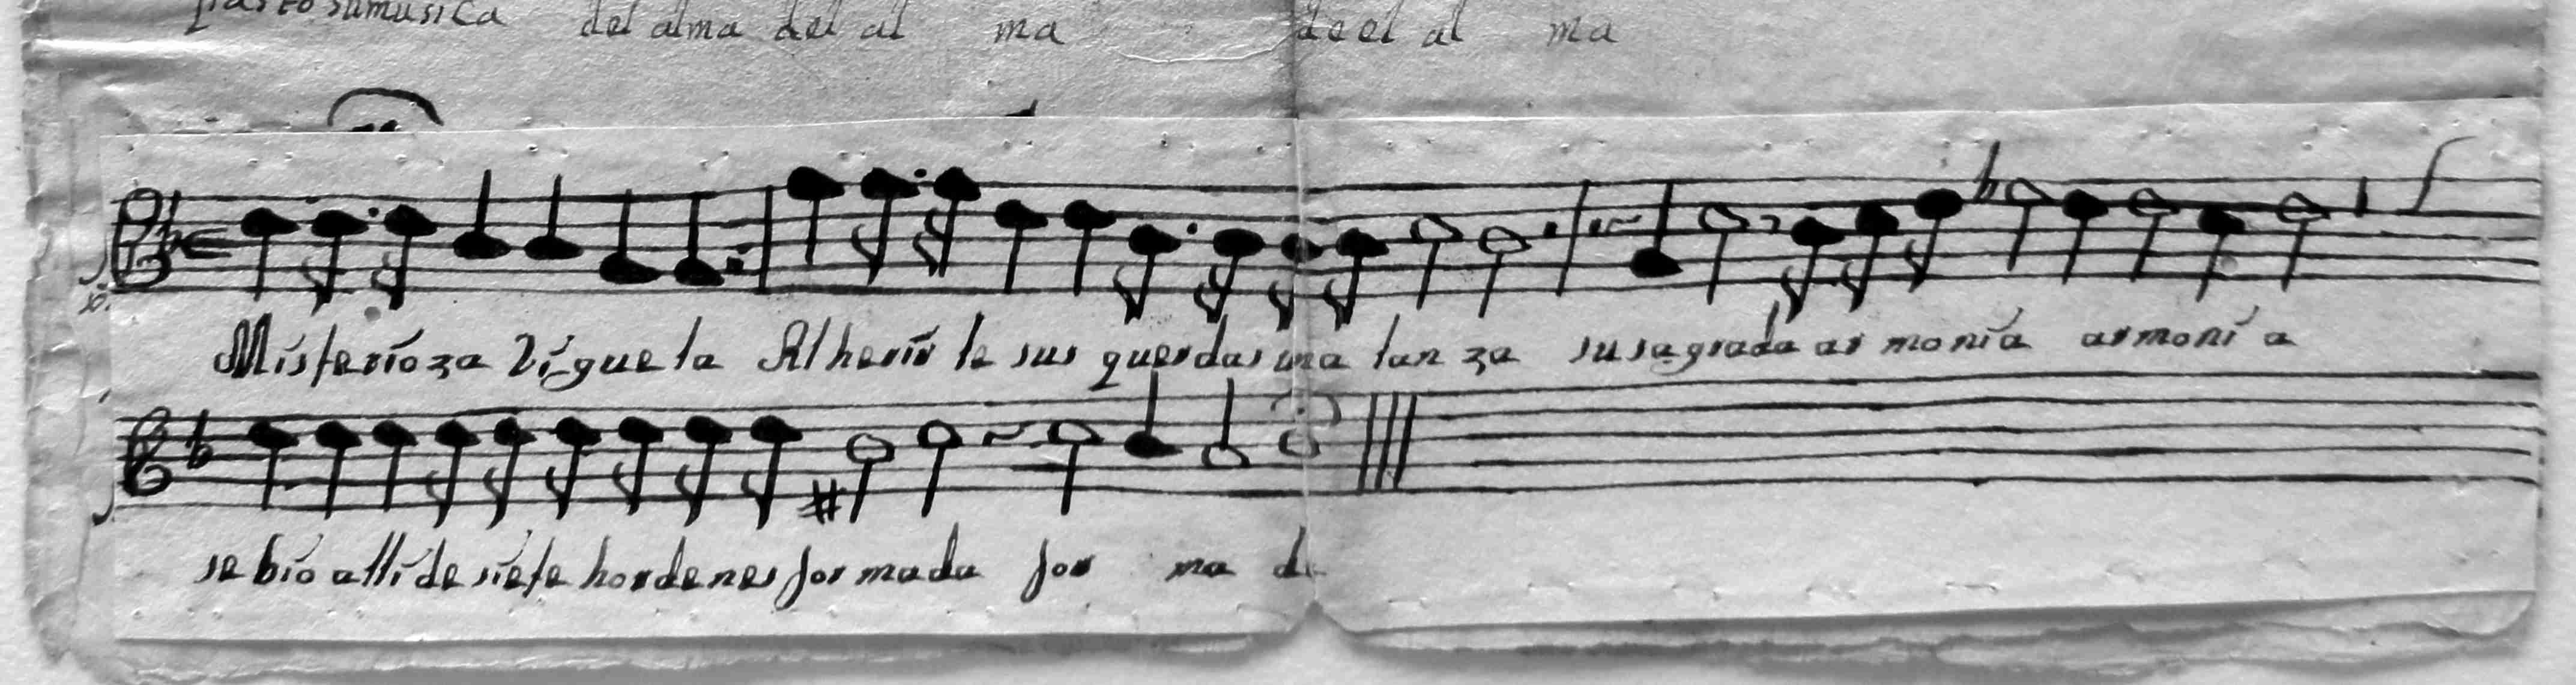 su musica del alma del al ma de el al ma
Misterioza Viguela Al herir le sus querdas una lanza su sagrada ar monía armoní a
se bio allí de siete hordenes for mada for ma da